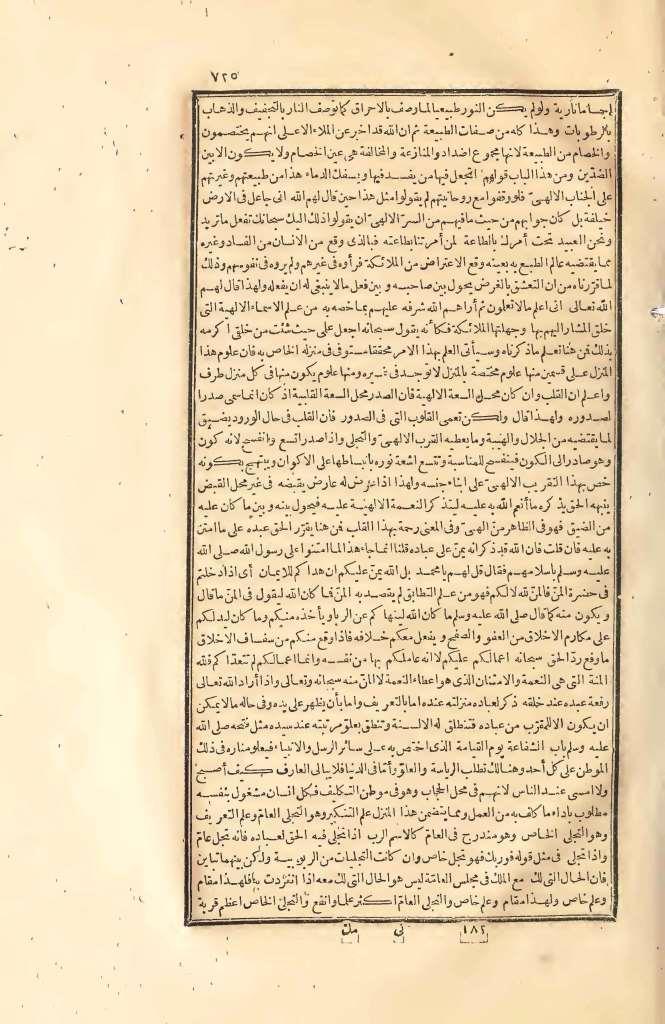 ٧٢٥
اجساما نارية ولو لم يكن النور طبيعيا لما وصف بالاحراق كما توصف النار بالتجفيف والذهاب
بالرطوبات وهذا كله من صفات الطبيعة ثم ان الله قد اخبر عن الملاء الاعلى انهم يختصمون
والخصام من الطبيعة لانها مجموع اضداد والمنازعة والمخالفة هي عين الخصام ولا يكون الا بين
الضدين ومن هذا الباب قولهم اتجعل فيها من يفسد فيها ويسفك الدماء هذا من طبيعتهم وغيرتهم
على الجناب الالهي فلو وقفوا مع روحانيتهم لم يقولوا مثل هذا حين قال لهم الله اني جاعل في الارض
خليفة بل كان جوابهم من حيث ما فيهم من السر الالهي ان يقولوا ذلك اليك سبحانك تفعل ما تريد
ونحن العبيد تحت أمرك بالطاعة لمن أمرتنا بطاعته فبالذي وقع من الانسان من الفساد وغيره
مما يقتضيه عالم الطبيعة به بعينه وقع الاعتراض من الملائكة فرأوه في غيرهم ولم يروه في نفوسهم وذلك
لما قررناه من ان التعشق بالغرض يحول بين صاحبه وبين فعل ما لا ينبغي له ان يفعله ولهذا قال لهم
الله تعالى اني اعلم ما لا تعلون ثم أراهم الله شرفه عليهم بما خصه به من علم الاسماء الالهية التي
خلق المشار اليهم بها وجهلتها الملائكة فكأنه يقول سبحانه اجعل علمي حيث شئت من خلقي اكرمه
بذلك فن هنا تعلم ما ذكرناه وسيأتي العلم بهذا الامر محققا مستوفى في منزله الخاص به فان علوم هذا
المنزل على قسمين منها علوم مختصة بالمنزل لا توجد في غيره ومنها علوم يكون منها في كل منزل طرف
واعلم ان القلب وان كان محل السعة الالهية فان الصدر محل السعة القلبية اذ كان انما سمى صدرا
لصدوره ولهذا قال ولكن تعمى القلوب التي في الصدور فان القلب في حال الورود يضيق
لما يقتضيه من الجلال والهيبة وما يعطيه القرب الالهي والتجلي واذا صدر اتسع وانفسح لانه كون
وهو صادر الى الكون فينفسح للمناسبة وتتسع اشعة نوره بانبساطها على الاكوان ويبتهج بكونه
خص بهذا التقريب الالهي على ابناء جنسه ولهذا اذا عرض له عارض يقبضه في غير محل القبض
ينبهه الحق بذكره ما أنعم الله به عليه ليتذكر النعمة الالهية عليه فيحول بينه وبين ما كان عليه
من الضيق فهو في الظاهر من الهي وفي المعنى رحمة بهذا القلب فن هنا يقرر الحق عبده على ما امتن
به عليه فان قلت فان الله قد ذكر انه يمن على عباده قلنا انما جاء هذا لما امتنوا على رسول الله صلى الله
عليه وسلم باسلامهم فقال قل لهم يا محمد بل الله يمن عليكم ان هداكم للايمان أي اذا دخلتم
في حضرة المن فالمن لله لا لكم فهو من علم التطابق لم يقصد به المن فما كان الله ليقول في المن ما قال
ويكون منه كما قال صلى الله عليه وسلم ما كان الله لينهاكم عن الربا ويأخذه منكم وما كان ليدلكم
على مكارم الاخلاق من العفو والصفح ويفعل معكم خلافه فاذا وقع منكم من سفساف الاخلاق
ما وقع ردّ الحق سبحانه اعمالكم عليكم لا انه عاملكم بها من نفسه وانما اعمالكم لم تتعداكم فلله
المنة التي هي النعمة والامتنان الذي هو اعطاء النعمة لا المن منه سبحانه وتعالى واذا أراد الله تعالى
رفعة عبده عند خلقه ذكر لعباده منزلته عنده اما بالتعريف واما بأن يظهر على يده وفي حاله ما لا يمكن
ان يكون الا للمقرب من عباده فتنطلق له الالسنة وتنطق بعلو مرتبته عند سيده مثل فتحه صلى الله
عليه وسلم باب الشفاعة يوم القيامة الذي اختص به على سائر الرسل والانبياء فيعلو مناره في ذلك
الموطن على كل أحد وهنالك تطلب الرياسة والعلو وأما في الدنيا فلا يبالي العارف كيف أصبح
ولا امسى عند الناس لانهم في محل الحجاب وهو في موطن التكليف فكل انسان مشغول بنفسه
مطلوب بأداء ما كلف به من العمل ومما يتضمن هذا المنزل علم التنكير وهو التجلي العام وعلم التعريف
وهو التجلي الخاص وهو مندرج في العام كالاسم الرب اذا تجلى فيه الحق لعباده فانه تجل عام
واذا تجلى في مثل قوله فوربك فهو تجل خاص وان كانت التجليات من الربوبية ولكن بينهما تباين
فان الحال التي لك مع الملك في مجلس العامة ليس هو الحال التي لك معه اذا انفردت به فلهذا مقام
وعلم خاص ولهذا مقام وعلم خاص والتجلي العام اكثر علما وانفع والتجلي الخاص اعظم قربة
١٨٢ نى مك